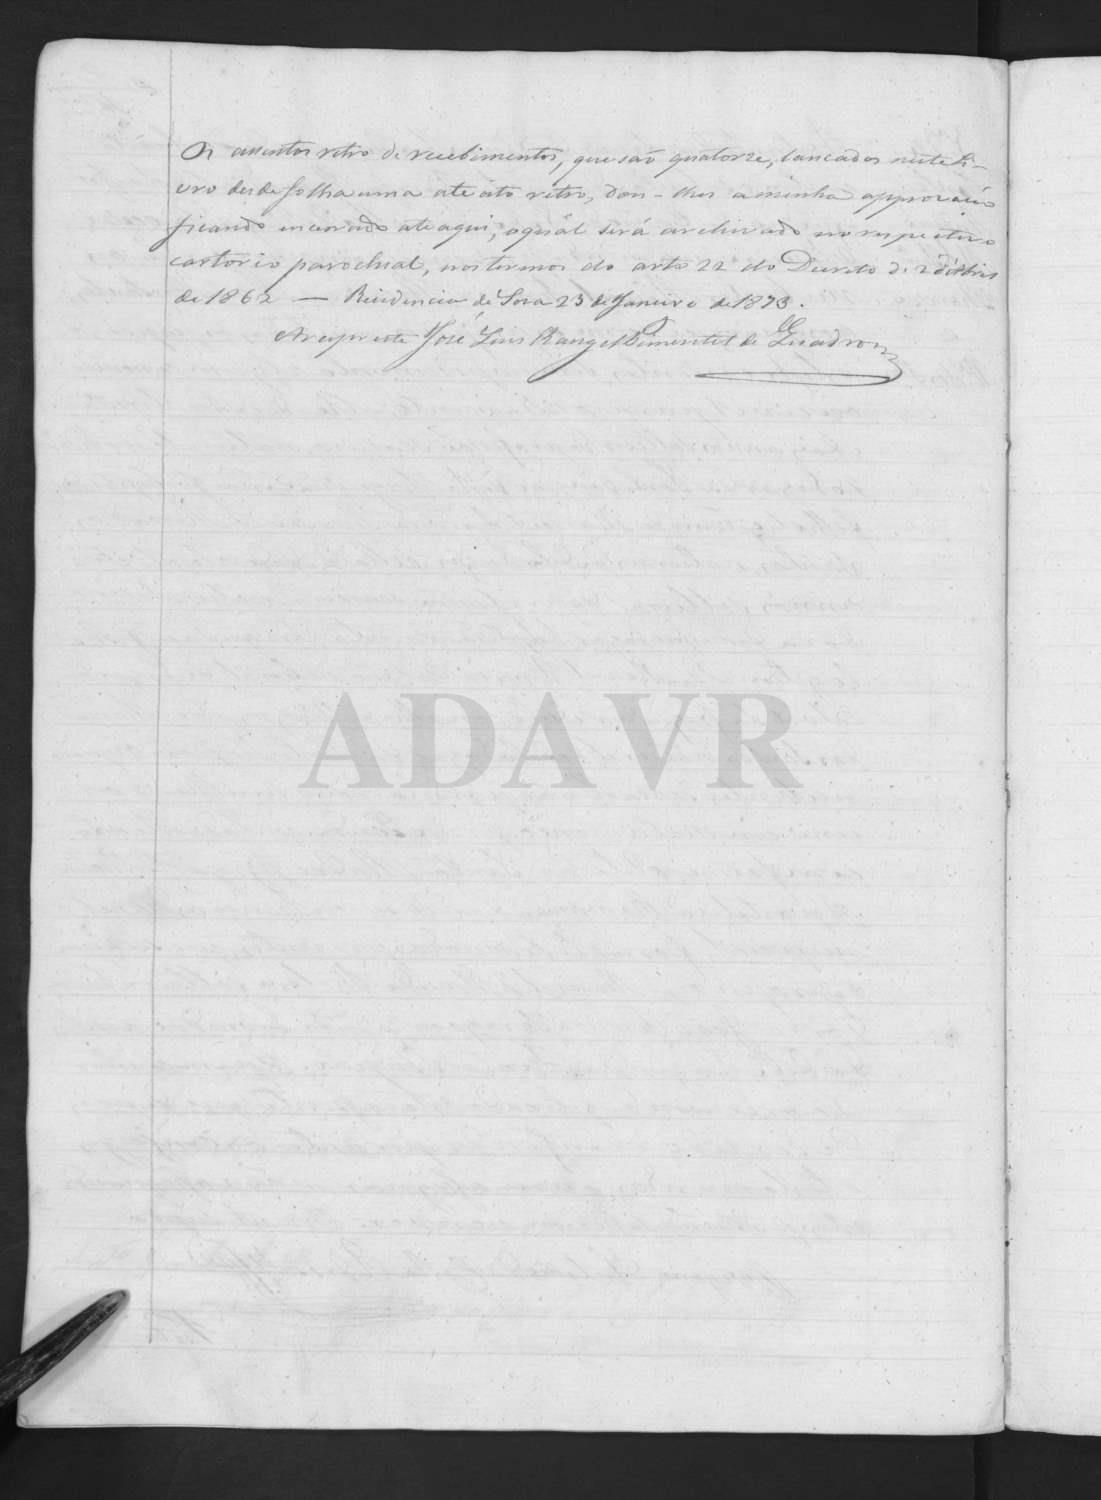 Os assentos retro de recebimentos, que são quatorze, lançados neste Li-
vro desde folha uma ate oito retro, dou-lhes a minha approvação
ficando encerrado ate aqui, o qual será archivado no respectivo
cartorio parochial, nos termos do arto 22 do Decreto de 2 d'
de 1862 — Residencia de Soza 23 de Janeiro de 1873.
Arcipreste José Luis Rangel Pimentel de Quadros
ADAVR